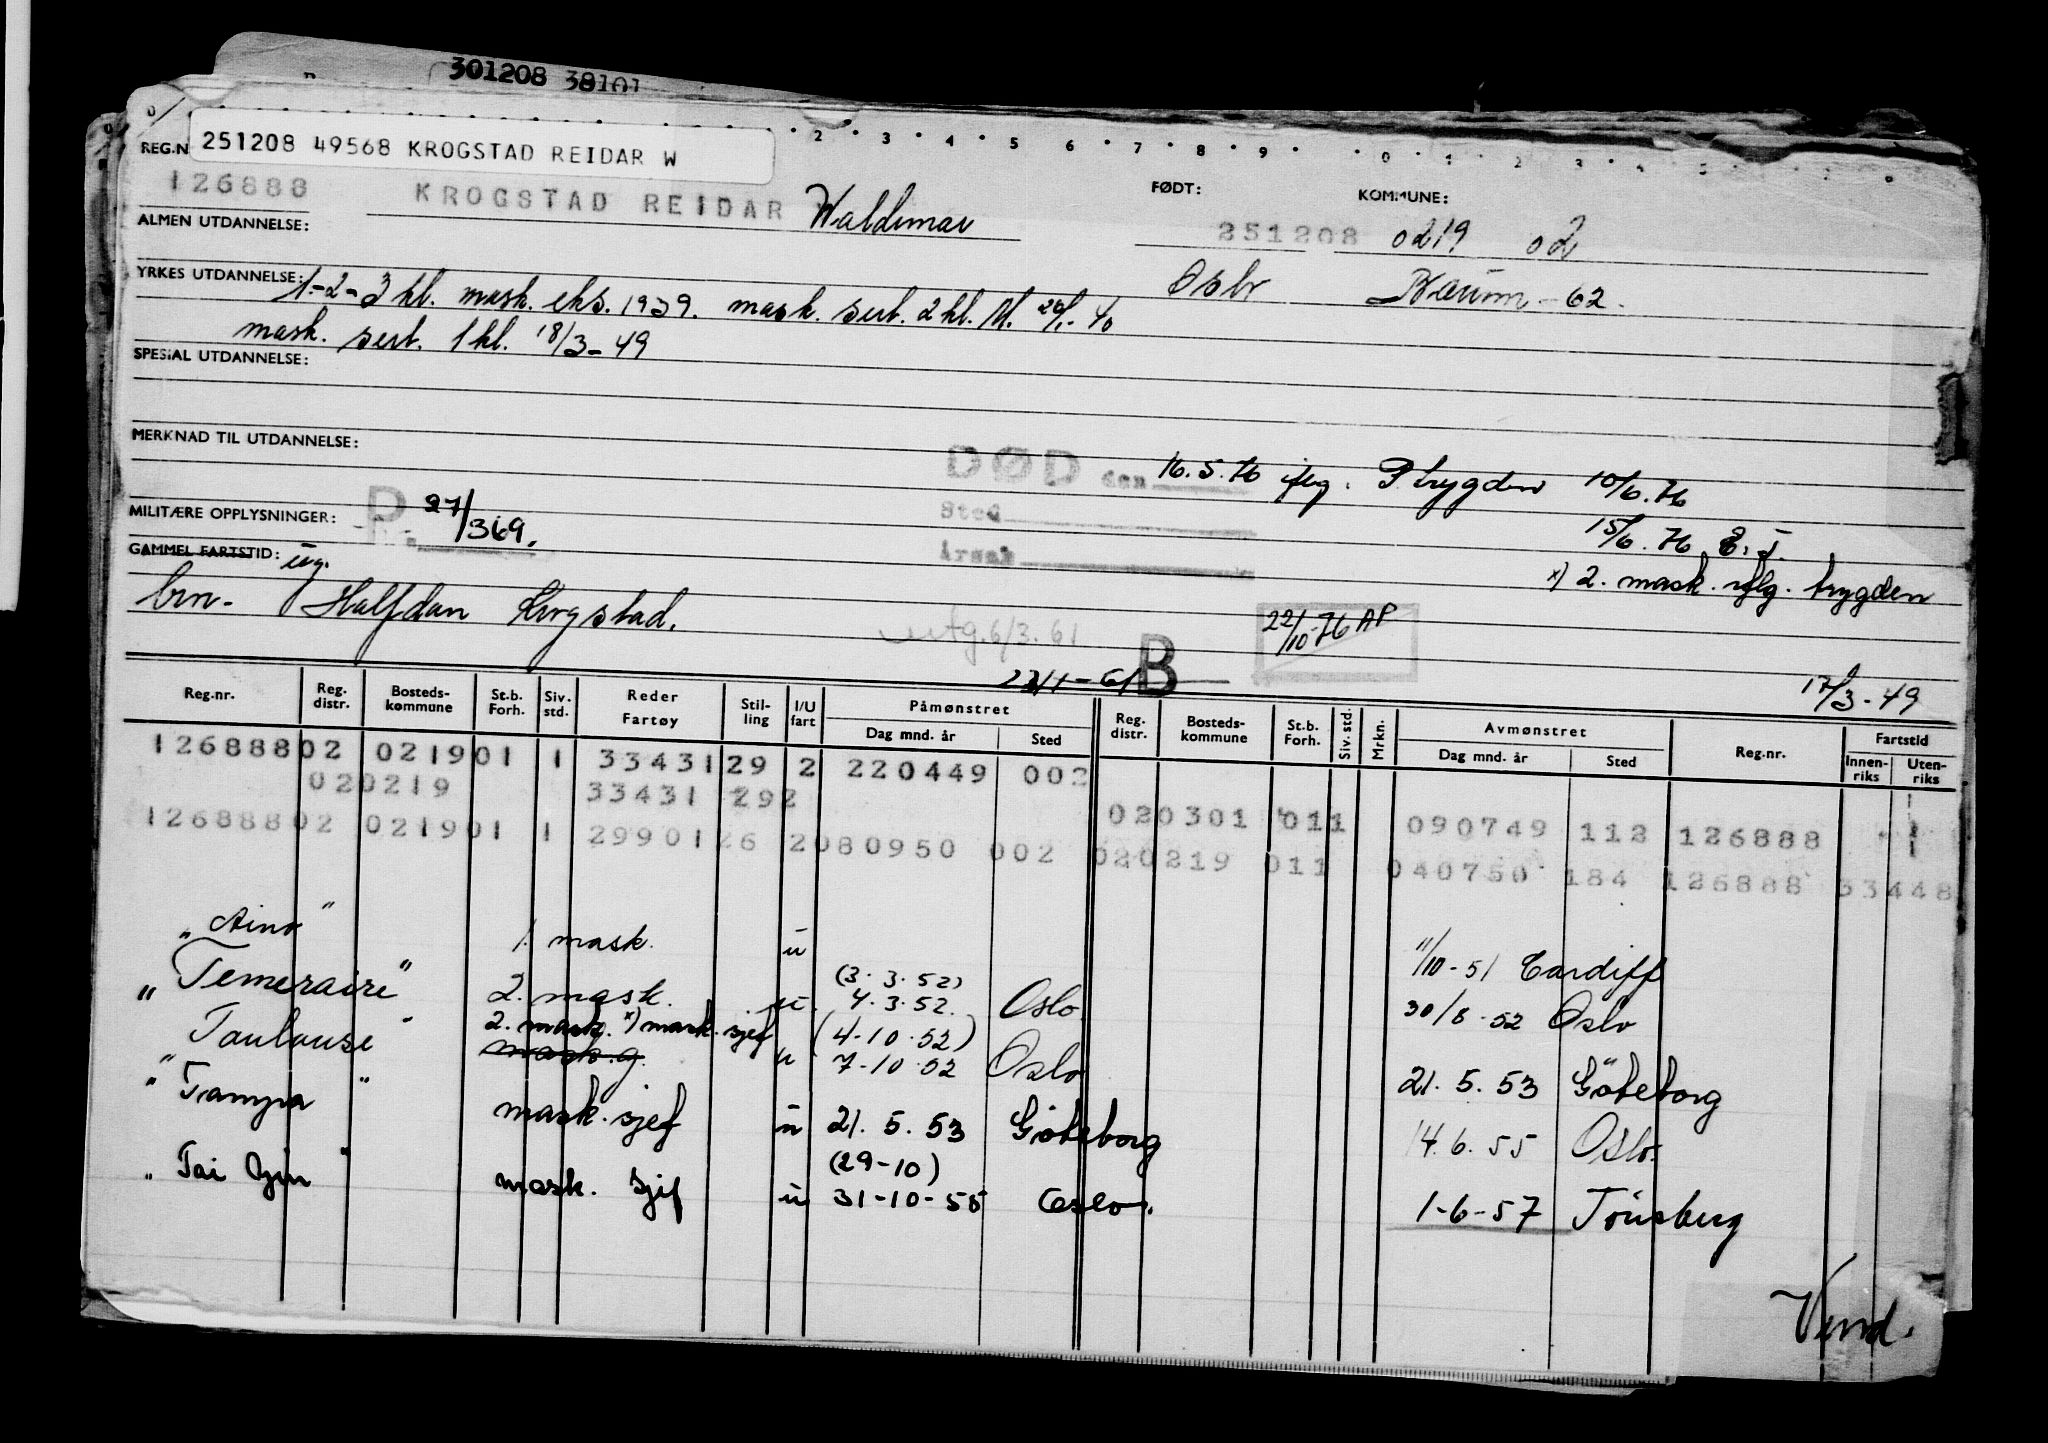 301208 38101
251208 49568 KROGSTAD REIDAR W
REG.N
FØDT:
KOMMUNE:
126888 KROGSTAD REIDAR Waldemar 251208 0219 02
ALMEN UTDANNELSE:
Oslo Bærum - 62.
YRKES UTDANNELSE: 1-2-3 kl. mask. eks. 1939. mask. sert. 2 kl. M. 40
mask. sert. 1 kl. 18/3-49
SPESIAL UTDANNELSE:
MERKNAD TIL UTDANNELSE:
DØD den 16.5.76 iflg. P trygden 10/6.76
Sted
15/6.76
MILITÆRE OPPLYSNINGER: P 27/369.
Årsak
x) 2. mask. iflg. trygden
GAMMEL FARTSTID:
Halfdan Krogstad.
utg. 6/3.61
22/10-76 AP
B
17/3-49
Reg.nr. Reg. distr. Bosteds-kommune St.b. Forh. Siv. std. Reder Fartøy Stil-ling I/U fart Påmønstret Dag mnd. år Sted Reg. distr. Bosteds-kommune St.b. Forh. Siv. std. Mrkn. Avmønstret Dag mnd. år Sted Reg.nr. Fartstid Innen-riks Uten-riks
126888 02 0219 01 1 33431 29 2 220449 002
020219 33431 292 020301 011 090749 112 126888
126888 02 0219 01 1 29901 26 2 080950 002 020219 011 040750 184 126888 33448
"Aino" 1. mask. u 11/10-51 Cardiff
"Temeraire" 2. mask. u. (3.3.52) 4.3.52. Oslo 30/8-52 Oslo
"Toulouse" 2. mask. x) mask. sjef u (4-10.52) 7-10.52 Oslo 21.5.53 Göteborg
"Tampa" mask. sjef u 21.5.53 Göteborg 14.6.55 Oslo.
(29-10)
"Tai Yin" mask. sjef u 31-10-55 Oslo. 1-6-57 Tönsberg
Vend.